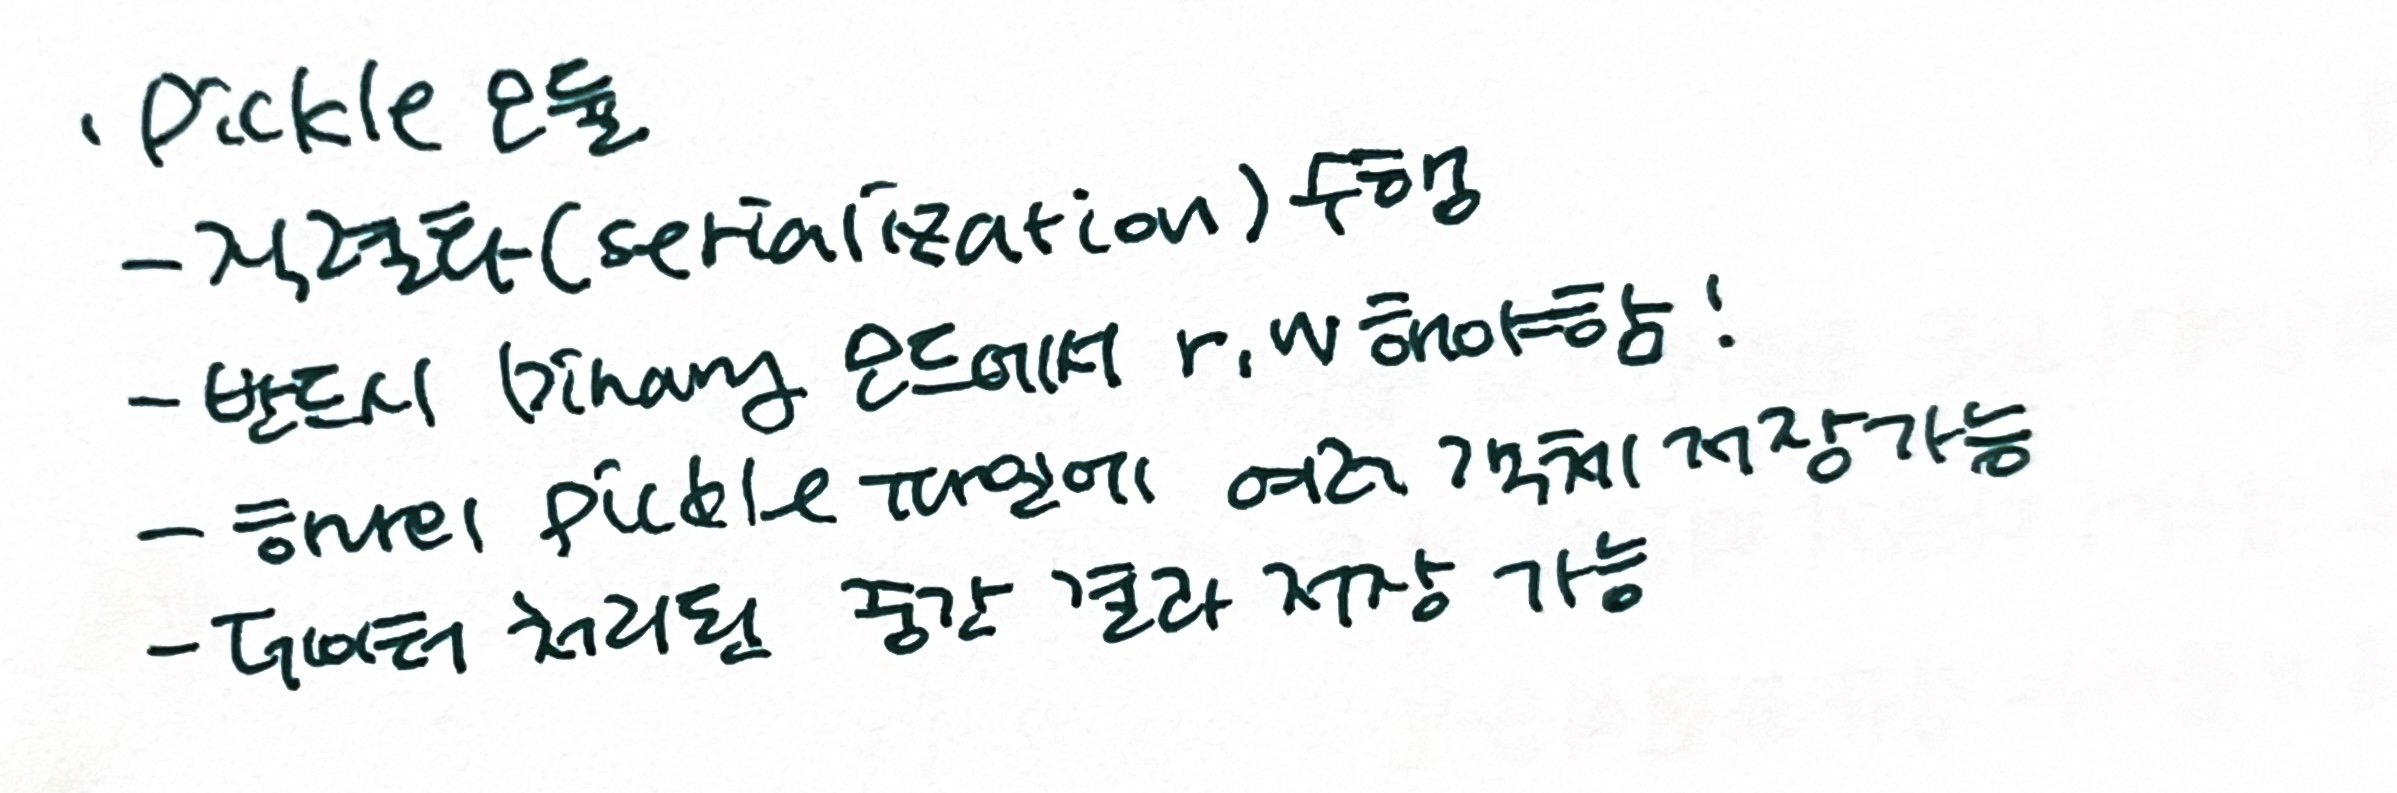 · Pickle 모듈
- 직렬화(serialization) 수행
- 반드시 binary 모드에서 r, w 해야함!
- 하나의 pickle 파일에 여러 객체 저장가능
- 데이터 처리된 중간 결과 저장 가능